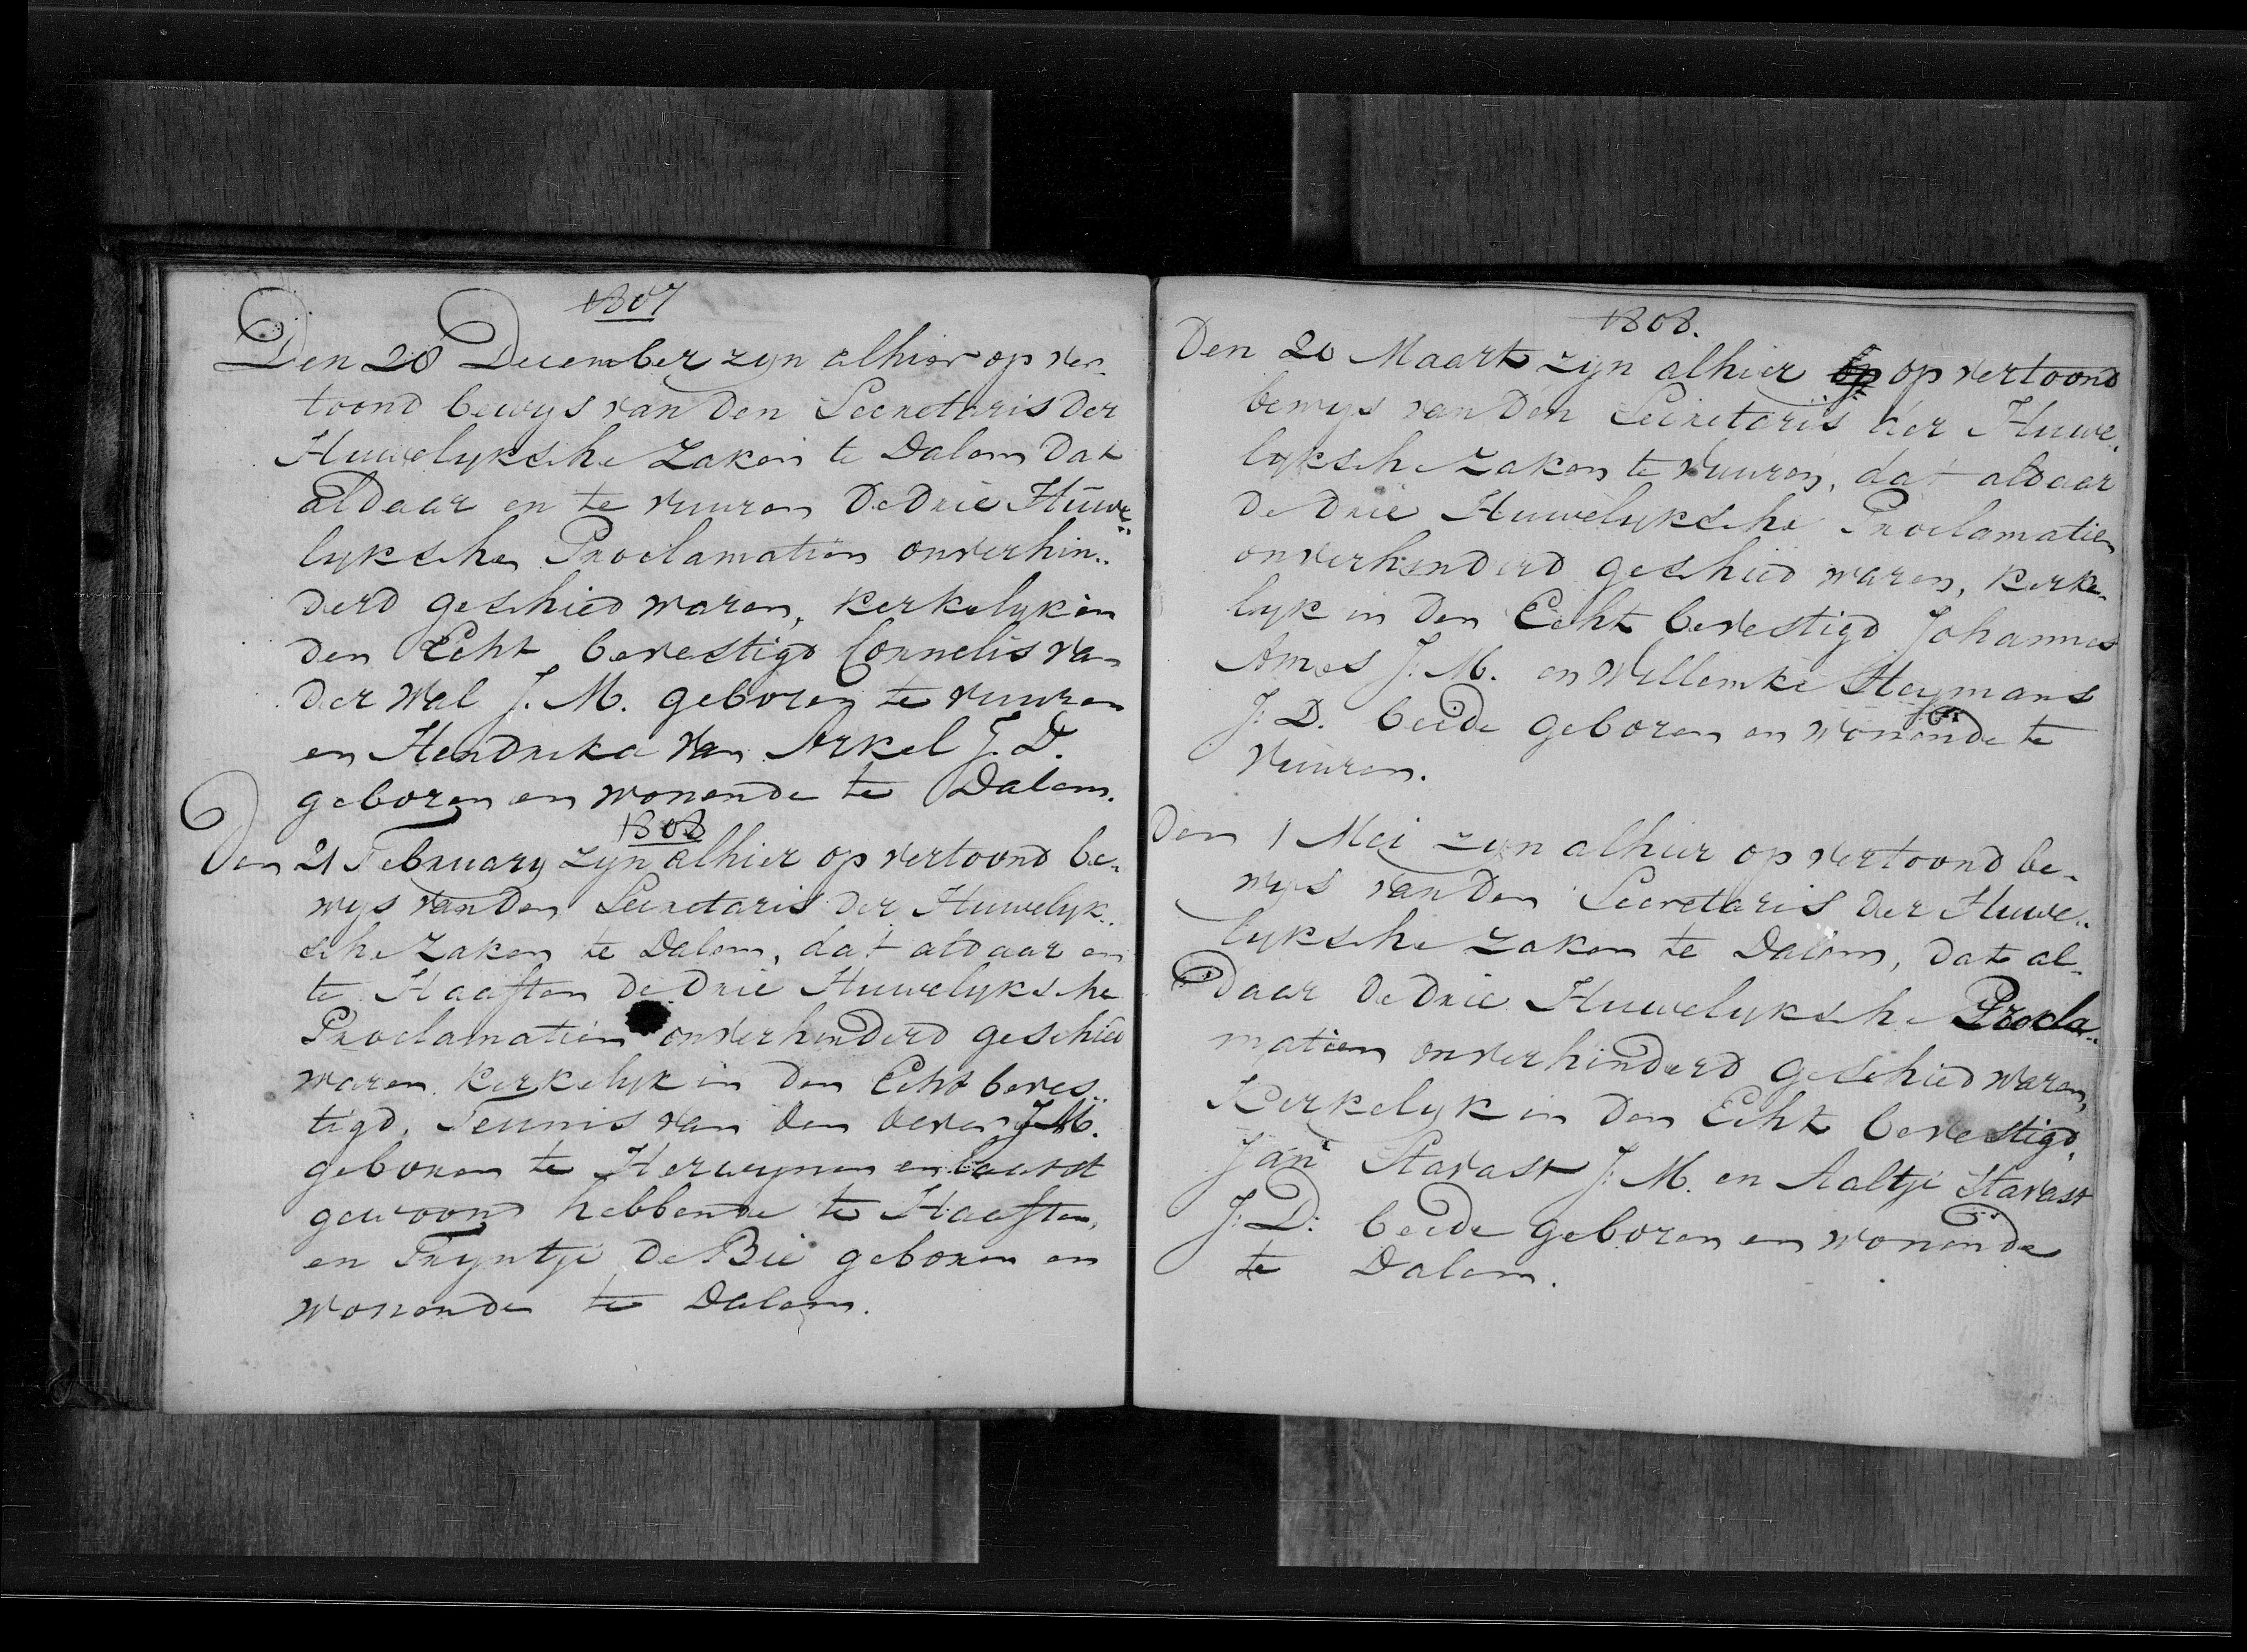 1807
Den 28 December zyn alhier op ver-
toond bewys van den Secretaris der
Huwelyksche Zaken te Dalem dat
aldaar en te vuuren de drie Huwe-
lyksche Proclamatien onverhin-
derd geschied waren, kerkelyk in
den Echt bevestigd Cornelis van
der Wal J. M. geboren te vuuren
en Hendrika van Arkel J. D.
geboren en wonende te Dalem.
1808
Den 21 February zyn alhier op vertoond be-
wys van den Secretaris der Huwelyk-
sche Zaken te Dalem, dat aldaar en
te Haaften de drie Huwelyksche
Proclamatien onverhinderd geschied
waren kerkelyk in den Echt beves-
tigd, Teunis van den Oever J M.
geboren te Herwynen en laatst
gewoond hebbende te Haaften,
en Tryntje de Bie geboren en
wonende te Dalem.
1808.
Den 20 Maart zyn alhier op op vertoond
bewys van den Secretaris der Huwe-
lyksche Zaken te vuuren, dat aldaar
de drie Huwelyksche Proclamatien
onverhinderd geschied waren, kerke-
lyk in den Echt bevestigd Johannes
Ames J. M. en Willemke Heymans
J: D. beide geboren en wonende te
vuuren.
Den 1 Mei zyn alhier op vertoond be-
wys van den Secretaris der Huwe-
lyksche Zaken te Dalem, dat al-
daar de drie Huwelyksche Procla-
matien onverhinderd geschied waren,
Kerkelyk in den Echt bevestigd,
Jan Stavast J: M. en Aaltje Stavast
J: D: beide geboren en wonende
te Dalem.